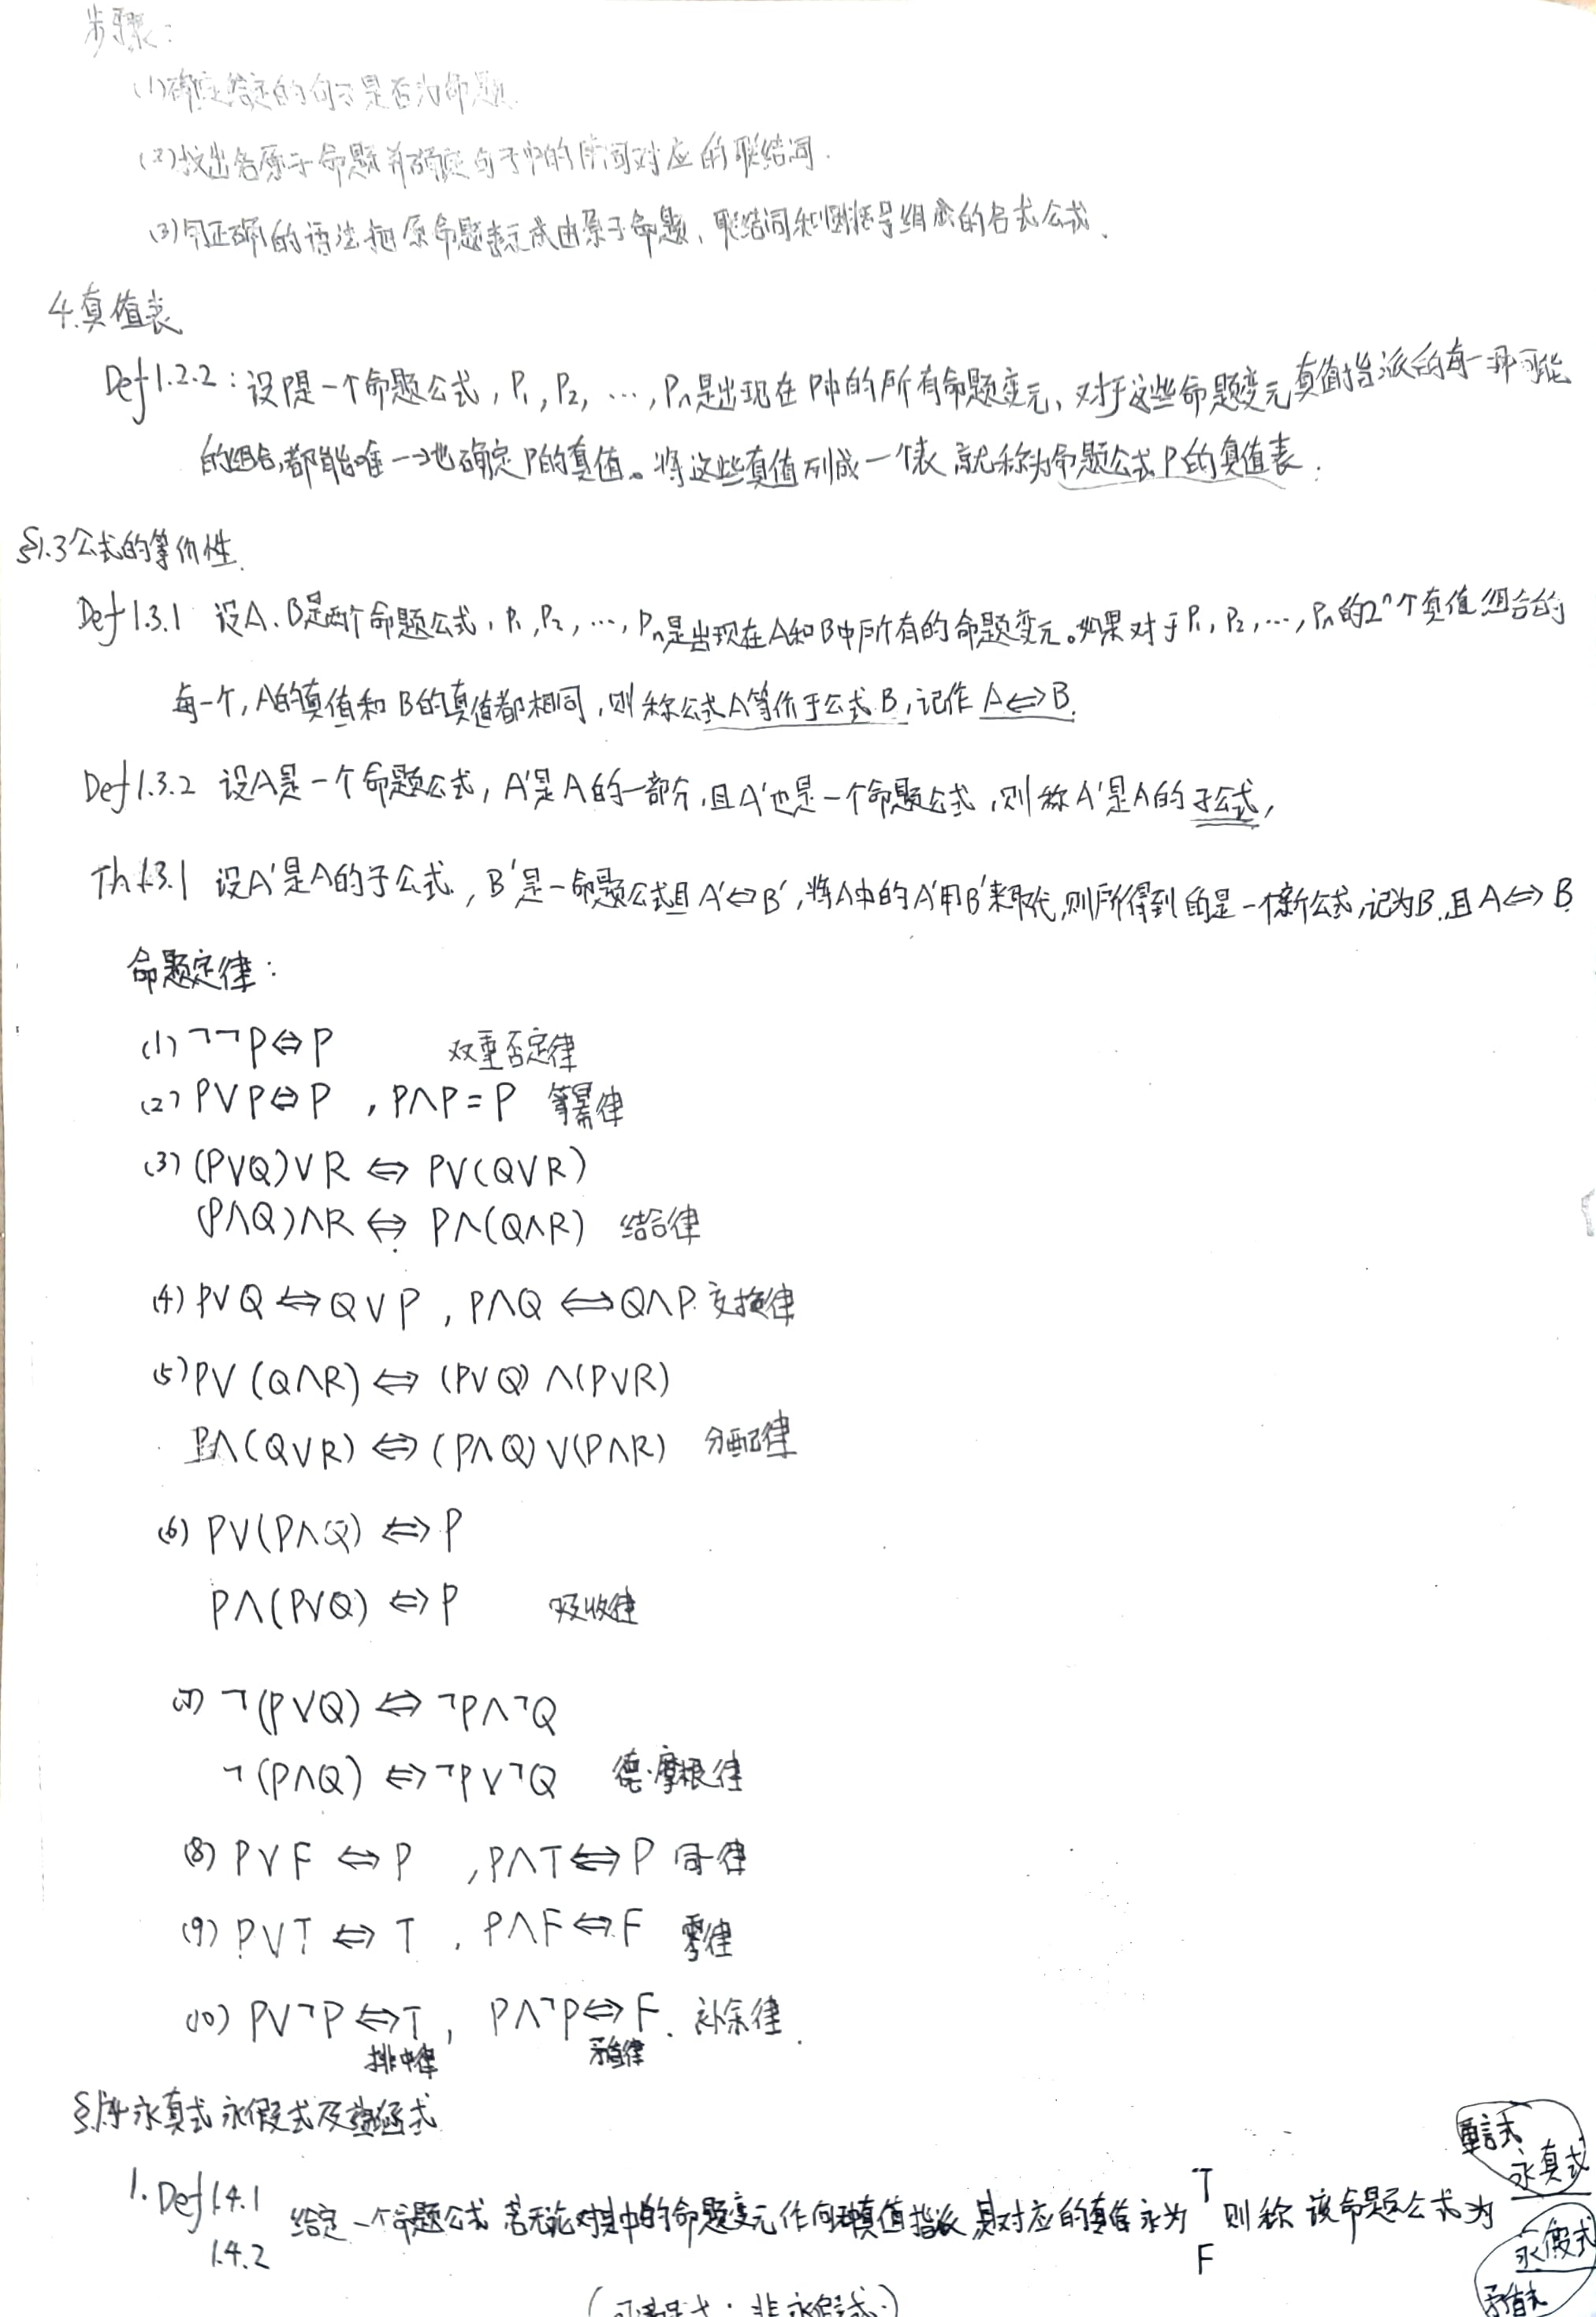 步骤：
(1)确定给定的句子是否为命题.
(2)找出各原子命题并确定句子中的作词对应的联结词.
(3)用正确的语法把原命题表示成由原子命题、联结词和圆括号组成的合式公式.
4.真值表
Def1.2.2：设P是一个命题公式，P₁,P₂,…,Pₙ是出现在P中的所有命题变元、对于这些命题变元真值指派的每一种可能
的组合,都能唯一地确定P的真值。将这些真值列成一个表 就称为命题公式P的真值表.
§1.3公式的等价性.
Def1.3.1 设A、B是两个命题公式，P₁,P₂,…,Pₙ是出现在A和B中所有的命题变元。如果对于P₁,P₂,…,Pₙ的2ⁿ个真值组合的
每一个,A的真值和B的真值都相同,则称公式A等价于公式B,记作A⇔B.
Def1.3.2 设A是一个命题公式,A'是A的一部分,且A'也是一个命题公式,则称A'是A的子公式,
Th1.3.1 设A'是A的子公式,B'是一命题公式且A'⇔B',将A中的A'用B'来取代,则所得到的是一个新公式,记为B,且A⇔B
命题定律：
(1)¬¬P⇔P 双重否定律
(2)P∨P⇔P ,P∧P=P 等幂律
(3)(P∨Q)∨R⇔P∨(Q∨R)
(P∧Q)∧R⇔P∧(Q∧R) 结合律
(4)P∨Q⇔Q∨P,P∧Q⇔Q∧P.交换律
(5)P∨(Q∧R)⇔(P∨Q)∧(P∨R)
P∧(Q∨R)⇔(P∧Q)∨(P∧R) 分配律
(6)P∨(P∧Q)⇔P
P∧(P∨Q)⇔P 吸收律
(7)¬(P∨Q)⇔¬P∧¬Q
¬(P∧Q)⇔¬P∨¬Q 德·摩根律
(8)P∨F⇔P ,P∧T⇔P 同一律
(9)P∨T⇔T , P∧F⇔F 零律
(10)P∨¬P⇔T, P∧¬P⇔F. 补余律.
排中律 矛盾律
§1.4永真式 永假式及蕴涵式
重言式
永真式
1.Def1.4.1 T
给定一个命题公式 若无论对其中的命题变元作何种真值指派 其对应的真值永为 则称 该命题公式为
1.4.2 F
永假式
矛盾式
(可满足式：非永假式.)